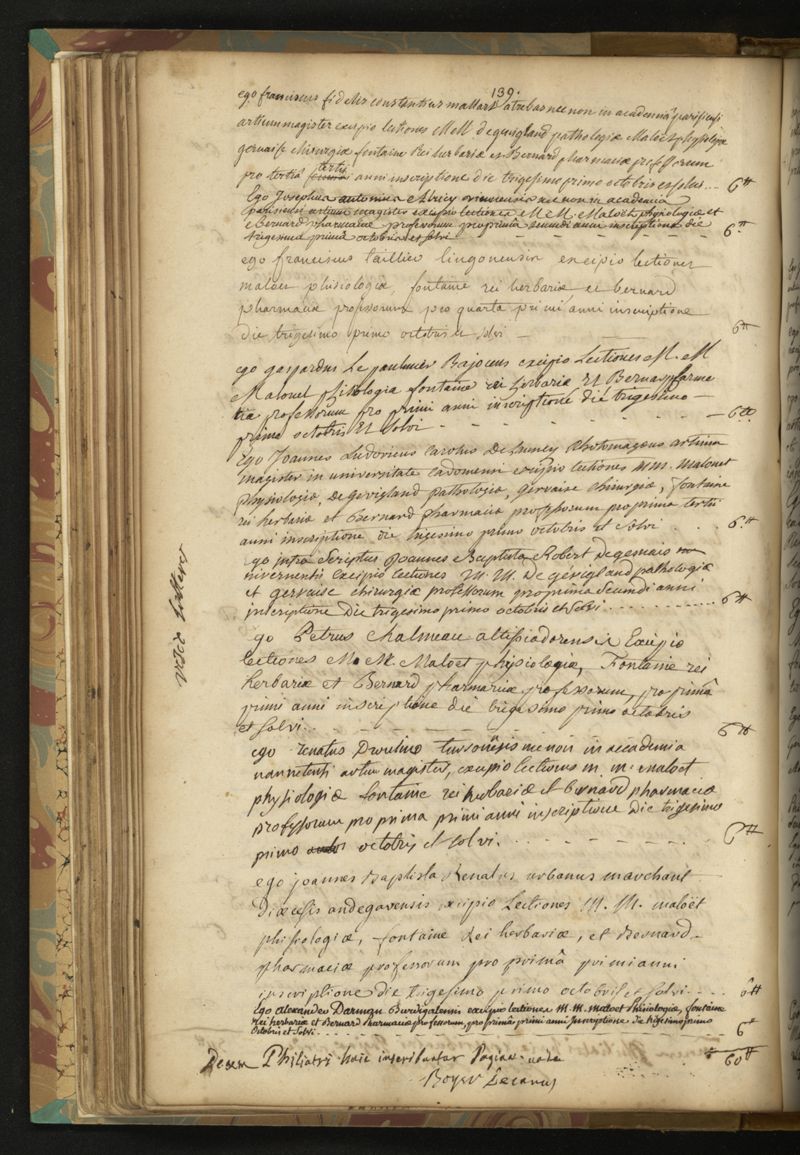 139.
ego franciscus fidelis constentius mallart atrebas nec non in academiâ parisiensi
artium magister excipio lectiones M.M. de gevigland pathologiæ Maloet physiologiæ
gervaise chirurgiæ fontaine Rei herbariæ et Bernard pharmaciæ professorum
pro tertiâ tertii anni inscriptione die trigesimo primo octobris et solvi... 6tt
Ego Josephus antonius necnon in academia
parisiensi artium magister excipio lectiones M.M. Maloët physiologiæ et
Bernard pharmaciæ professorum pro primâ secundi anni inscriptione die
trigesimâ primâ octobris et solvi - - - 6tt
ego franciscus taillier lingonensis excipio lectiones
maloet phisiologiæ, fontaine rei herbariæ et bernard
pharmaciæ professorum pro quarta primi anni inscriptione
die trigesimo primo octobris et solvi - - 6tt
ego gaspardus Le paulmier Bajoceus excipio Lectiones M.M
Malouet phisologia fontaine rei herbariæ Et Bernar pharma
tiæ professorum pro primi anni inscriptione die trigesimo -
primo octobris Et Solvi - - - - 6tt
Ego Joannes Ludovicus Carolus De Lumey Rhotomagæus artium
magister in universitate Cadomensi excipio lectiones MM. Malouet
physiologiæ, De Gevigland pathologiæ, Gervaise Chirurgiæ, fontaine
rei herbariæ et Bernard pharmaciæ professorum pro prima tertii
anni inscriptione die trigesimo primo octobris et solvi . . . 6tt
Ego infra Scriptus Joannes Baptista Robert Degemais
nivernensis Excipio lectiones M.M. De gévigland pathologiæ
et gervaise chirurgiæ professorum pro prima Secundi anni
inscriptione Die trigesimo primo octobris et Solvi . . . . . 6tt
Ego Petrus Chalmeau altissiodorensis Excipio
Lectiones M.M. Maloet physiologiæ, Fontaine rei
herbariæ et Bernard pharmaciæ professorum, pro primâ
primi anni inscriptione die trigesimo primo octobris
et solvi. . - - - - 6tt
ego renatus turonensis nec non in accademia
nannetensi artium magister, excipio lectiones m. m. maloet
physiologiæ fontaine rei herbariæ et bernard pharmaciæ
professorum pro prima primi anni inscriptione die trigesimo
primo octobris et solvi. . . . 6tt
ego joannes Baptista Renatus urbanus marchant
diæcesis andegavensis excipio Lectiones M. M. maloët
phisiologiæ, fontaine Rei herbariæ, et Bernard
pharmaciæ professorum pro primâ primi anni
inscriptione die trigesimo primo octobris et solvi . . . 6tt
Ego alexander Burdigalensis excipio lectiones M.M. maloet Phisiologiæ, fontaine
Rei herbariæ et Bernard Pharmaciæ professorum, pro primâ primi anni Inscriptione die trigesimo primo
Octobris et Solvi. . . . . . 6tt
Decem Philiatri huic inscribuntur Paginæ. 60tt
Boyer Decanus